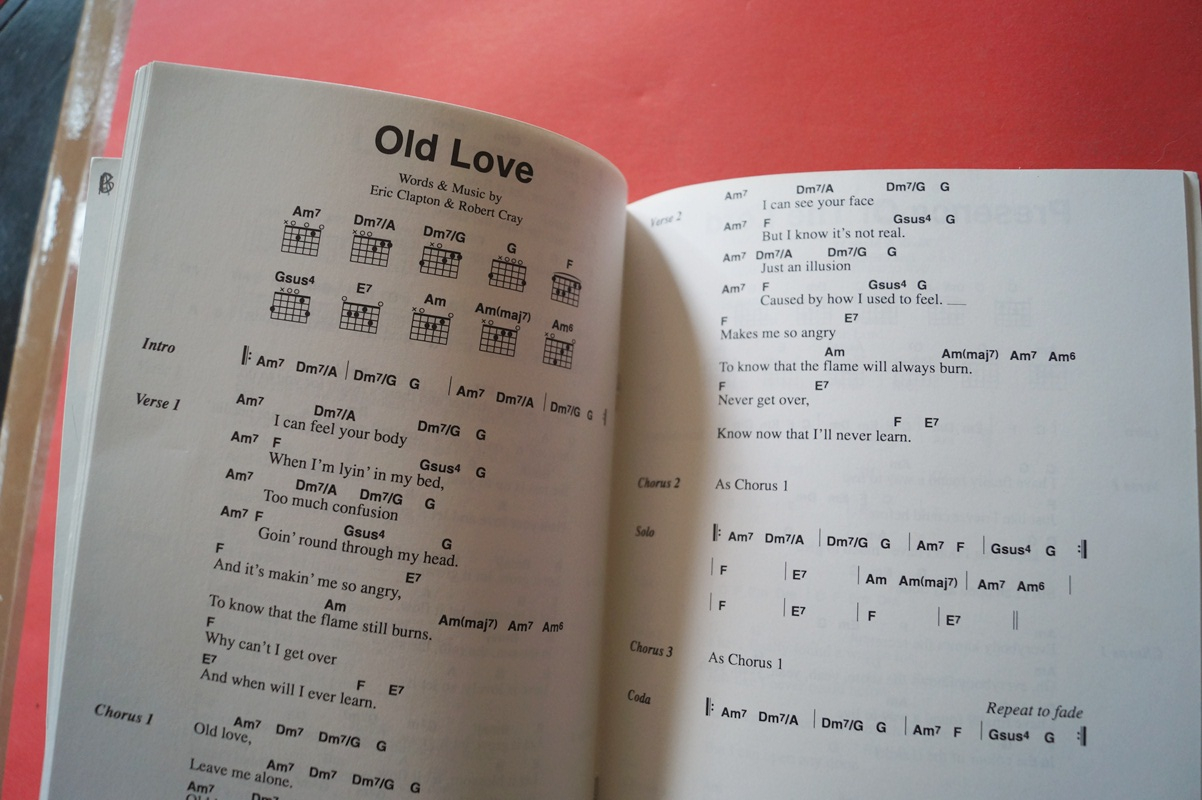 Old Love
Words & Music by
Eric Clapton & Robert Cray
Am7 Dm7/A Dm7/G G F
Gsus4 E7 Am Am(maj7) Am6
Intro
Am7 Dm7/A Dm7/G G Am7 Dm7/A Dm7/G G
Verse 1
Am7 Dm7/A Dm7/G G
I can feel your body
Am7 F Gsus4 G
When I'm lyin' in my bed,
Am7 Dm7/A Dm7/G G
Too much confusion
Am7 F Gsus4 G
Goin' round through my head.
F E7
And it's makin' me so angry,
Am Am(maj7) Am7 Am6
To know that the flame still burns.
F
Why can't I get over
E7 F E7
And when will I ever learn.
Chorus 1
Am7 Dm7 Dm7/G G
Old love,
Am7 Dm7 Dm7/G G
Leave me alone.
Am7
Verse 2
Am7 Dm7/A Dm7/G G
I can see your face
Am7 F Gsus4 G
But I know it's not real.
Am7 Dm7/A Dm7/G G
Just an illusion
Am7 F Gsus4 G
Caused by how I used to feel. __
F E7
Makes me so angry
Am Am(maj7) Am7 Am6
To know that the flame will always burn.
F E7
Never get over,
F E7
Know now that I'll never learn.
Chorus 2 As Chorus 1
Solo
Am7 Dm7/A Dm7/G G Am7 F Gsus4 G
F E7 Am Am(maj7) Am7 Am6
F E7 F E7
Chorus 3 As Chorus 1
Coda
Repeat to fade
Am7 Dm7/A Dm7/G G Am7 F Gsus4 G